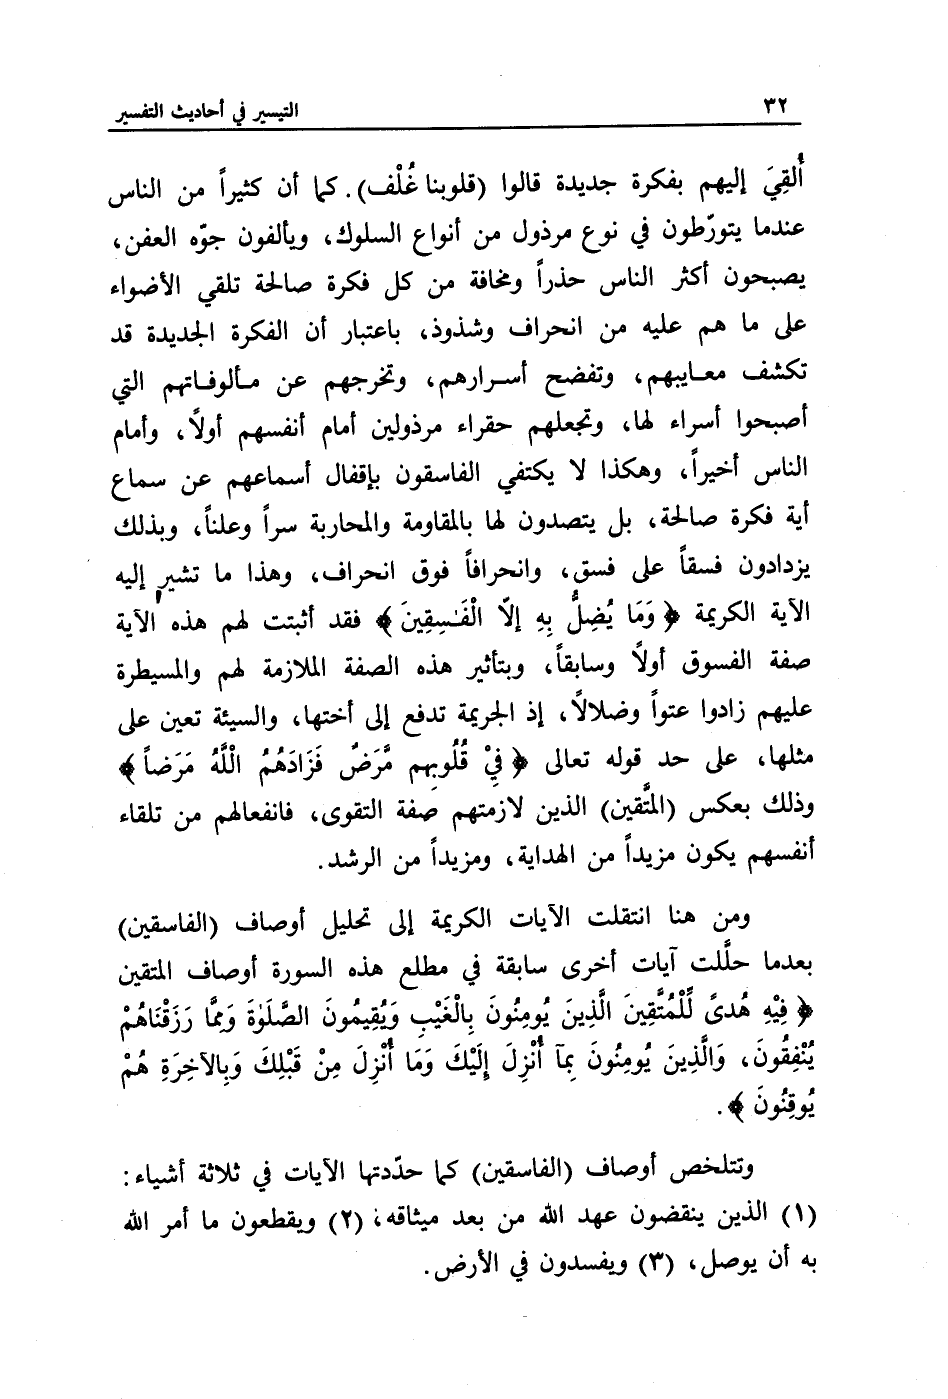 ٣٢
التيسير في أحاديث التفسير
أُلقِيَ إليهم بفكرة جديدة قالوا (قلوبنا غُلْف). كما أن كثيراً من الناس
عندما يتورّطون في نوع مرذول من أنواع السلوك، ويألفون جوّه العفن،
يصبحون أكثر الناس حذراً ومخافة من كل فكرة صالحة تلقي الأضواء
على ما هم عليه من انحراف وشذوذ، باعتبار أن الفكرة الجديدة قد
تكشف معايبهم، وتفضح أسرارهم، وتخرجهم عن مألوفاتهم التي
أصبحوا أسراء لها، وتجعلهم حقراء مرذولين أمام أنفسهم أولًا، وأمام
الناس أخيراً، وهكذا لا يكتفي الفاسقون بإقفال أسماعهم عن سماع
أية فكرة صالحة، بل يتصدون لها بالمقاومة والمحاربة سراً وعلناً، وبذلك
يزدادون فسقاً على فسق، وانحرافاً فوق انحراف، وهذا ما تشير إليه
الآية الكريمة ﴿ وَمَا يُضِلُّ بِهِ إلّا الْفَـٰسِقِينَ ﴾ فقد أثبتت لهم هذه الآية
صفة الفسوق أولًا وسابقاً، وبتأثير هذه الصفة الملازمة لهم والمسيطرة
عليهم زادوا عتواً وضلالًا، إذ الجريمة تدفع إلى أختها، والسيئة تعين على
مثلها، على حد قوله تعالى ﴿ فِيْ قُلُوبِهِم مَّرَضٌ فَزَادَهُمُ اللَّهُ مَرَضاً ﴾
وذلك بعكس (المتَّقين) الذين لازمتهم صفة التقوى، فانفعالهم من تلقاء
أنفسهم يكون مزيداً من الهداية، ومزيداً من الرشد.
ومن هنا انتقلت الآيات الكريمة إلى تحليل أوصاف (الفاسقين)
بعدما حلَّلت آيات أخرى سابقة في مطلع هذه السورة أوصاف المتقين
﴿ فِيْهِ هُدىً لِّلْمُتَّقِينَ الَّذِينَ يُومِنُونَ بِالْغَيْبِ وَيُقِيمُونَ الصَّلَوٰةَ وَمِمَّا رَزَقْنَاهُمْ
يُنْفِقُونَ، وَالَّذِينَ يُومِنُونَ بِمَآ أُنْزِلَ إِلَيْكَ وَمَا أُنْزِلَ مِنْ قَبْلِكَ وَبِالآخِرَةِ هُمْ
يُوقِنُونَ ﴾.
وتتلخص أوصاف (الفاسقين) كما حدّدتها الآيات في ثلاثة أشياء:
(١) الذين ينقضون عهد الله من بعد ميثاقه، (٢) ويقطعون ما أمر الله
به أن يوصل، (٣) ويفسدون في الأرض.